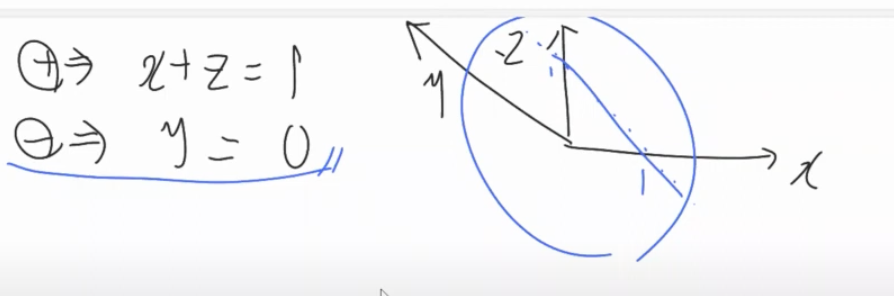 ⊕⇒ x+z=1
⊖⇒ y=0
y
z
1
1
x